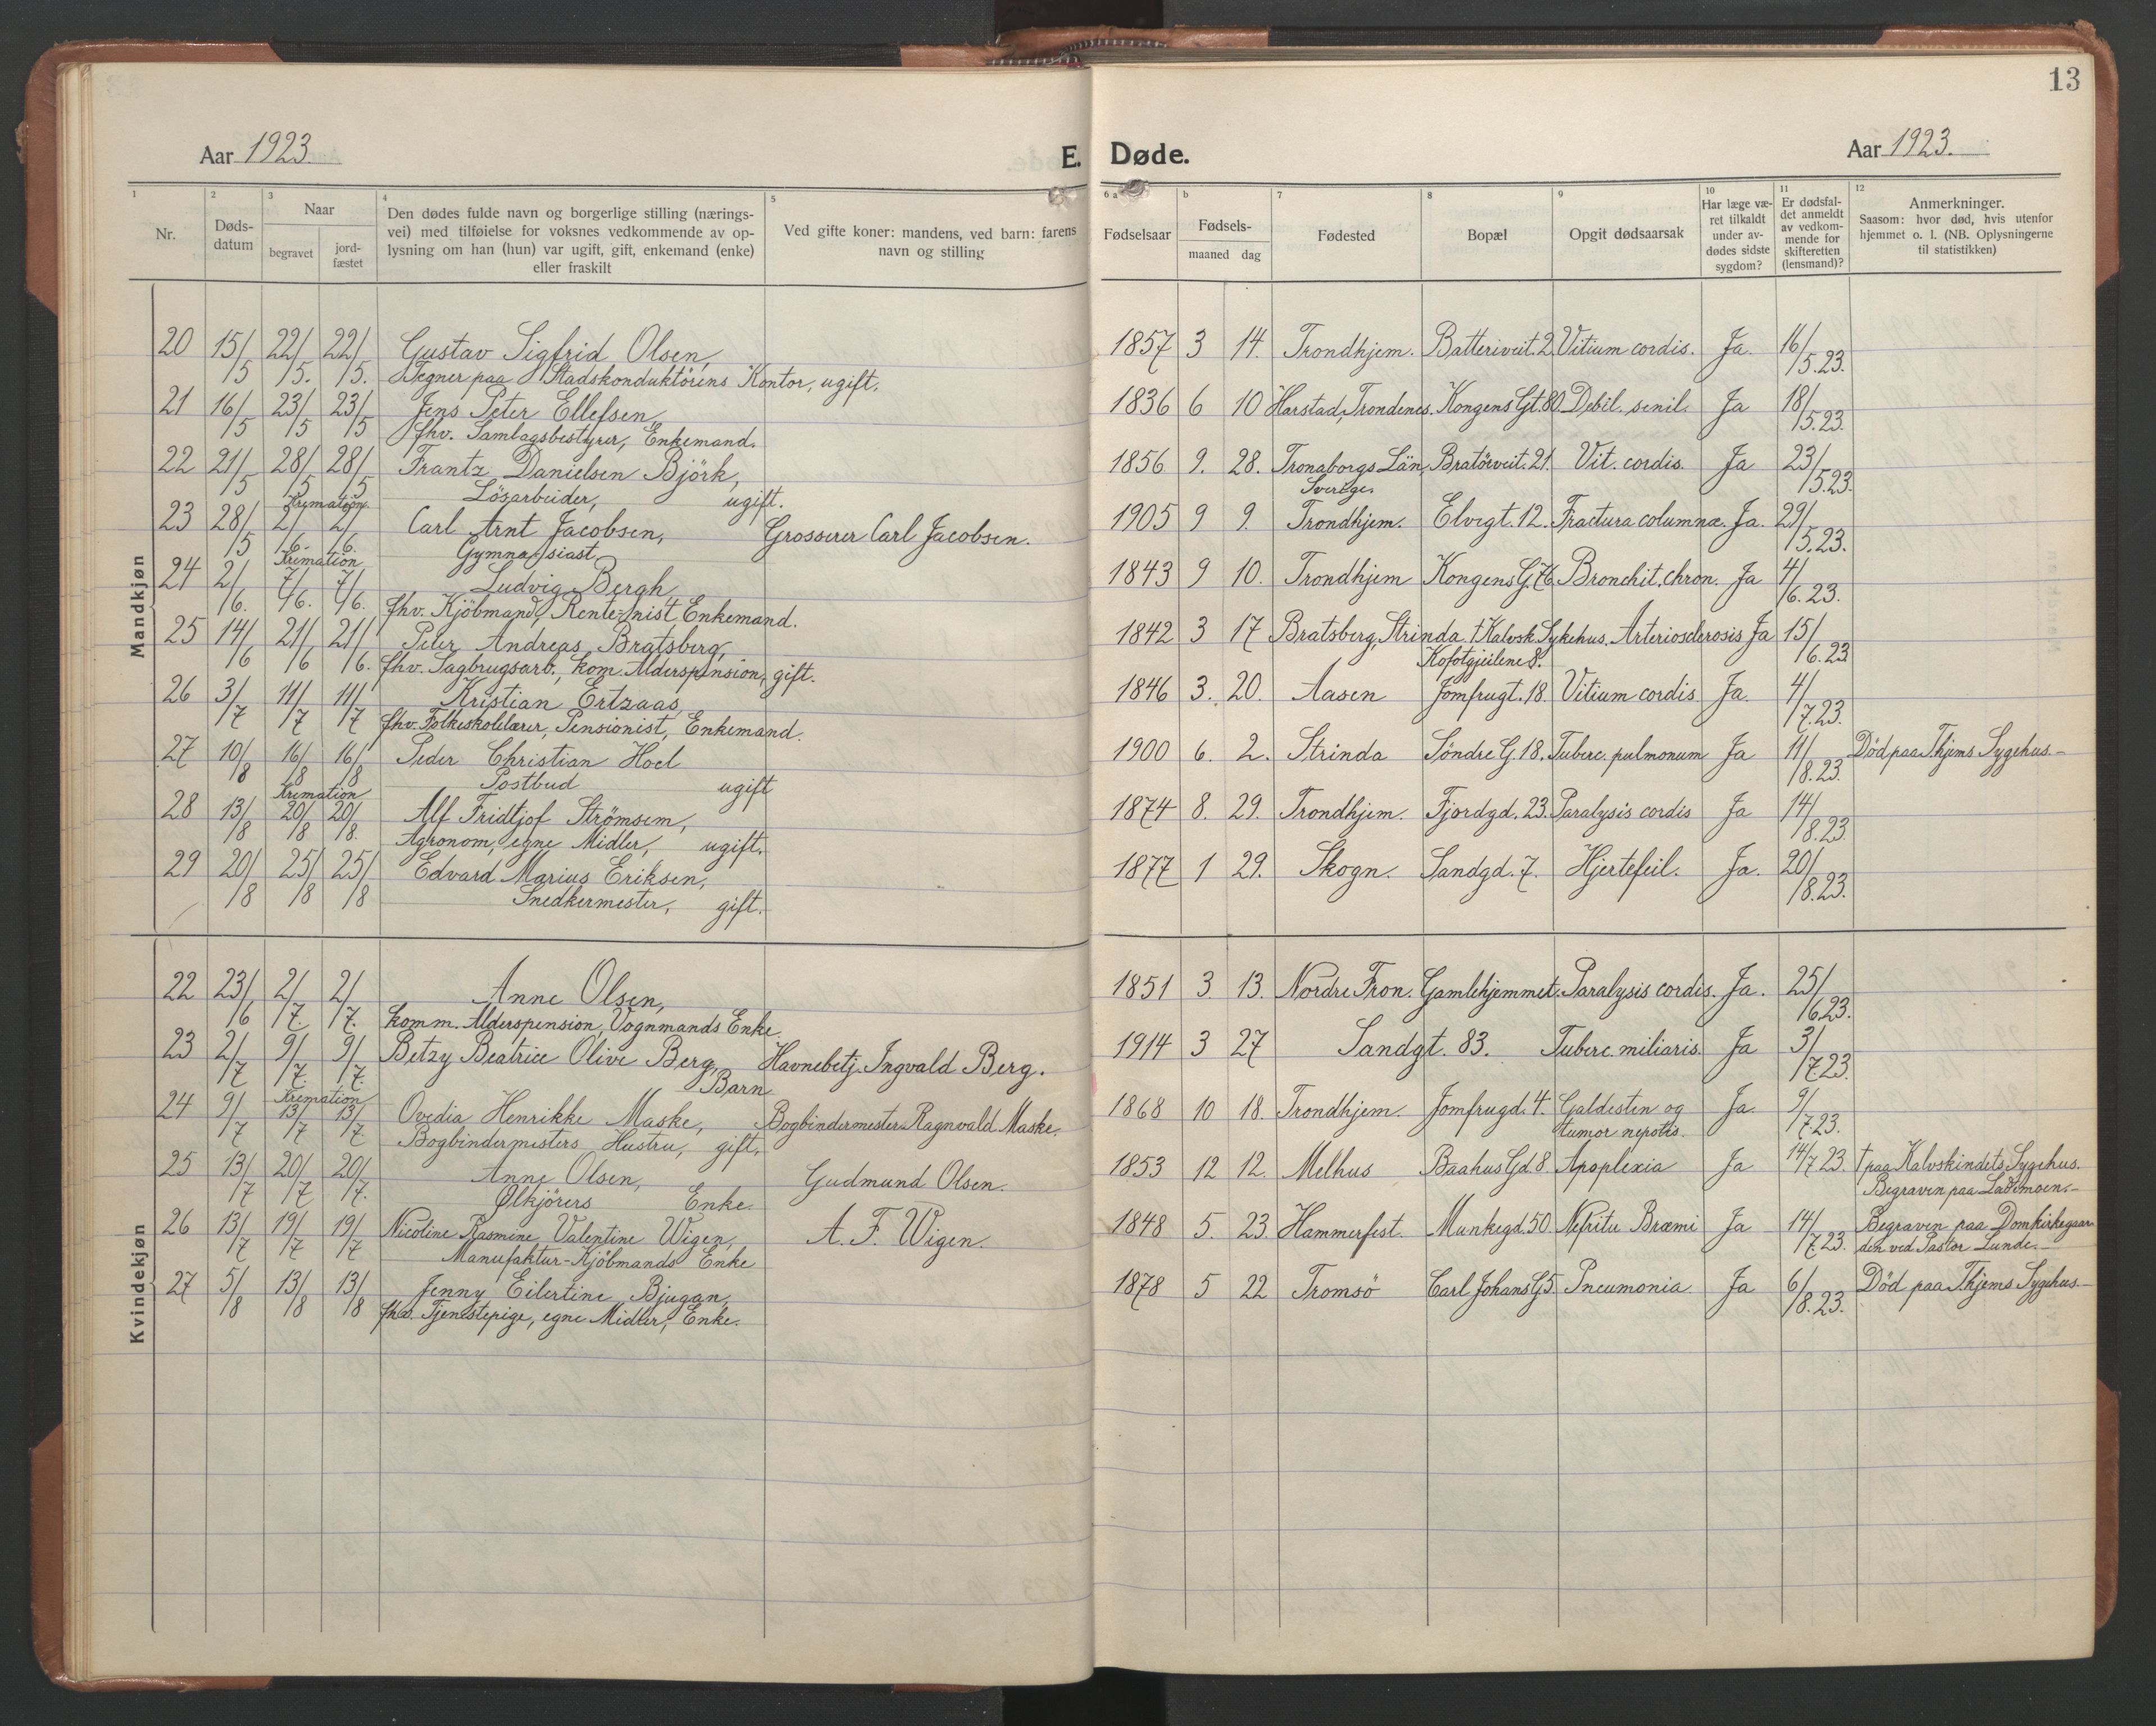 13
Aar 1923.
E. Døde.
Aar 1923.
1 Nr.
2 Døds-datum
3 Naar begravet jord-fæstet
4 Den dødes fulde navn og borgerlige stilling (nærings-
vei) med tilføielse for voksnes vedkommende av op-
lysning om han (hun) var ugift, gift, enkemand (enke)
eller fraskilt
5 Ved gifte koner: mandens, ved barn: farens
navn og stilling
6 a Fødselsaar
b Fødsels-
maaned dag
7 Fødested
8 Bopæl
9 Opgit dødsaarsak
10 Har læge væ-
ret tilkaldt
under av-
dødes sidste
sygdom?
11 Er dødsfal-
det anmeldt
av vedkom-
mende for
skifteretten
(lensmand)?
12 Anmerkninger.
Saasom: hvor død, hvis utenfor
hjemmet o. l. (NB. Oplysningerne
til statistikken)
Mandkjøn
20 15/5 22/5. 22/5. Gustav Sigfrid Olsen, 1857 3 14. Trondhjem. Batteriveit. 2. Vitium cordis. Ja. 16/5.23.
Tegner paa Stadskonduktörens Kontor, ugift.
21 16/5 23/5 23/5 Jens Peter Ellefsen, 1836 6 10 Harstad, Trondenes. Kongens Gt. 80. Debil. senil. Ja 18/5.23.
fhv. Samlagsbestyrer, Enkemand.
22 21/5 28/5 28/5 Frantz Danielsen Björk, 1856 9. 28. Tronaborgs Län, Bratörveit. 21. Vit. cordis. Ja 23/5.23.
Lösarbeider, ugift. Sverige.
Kremation
23 28/5 2/6. 2/6. Carl Arnt Jacobsen, Grosserer Carl Jacobsen. 1905 9 9. Trondhjem. Elvegt. 12. Fractura columnæ. Ja. 29/5.23.
Gymnasiast
Kremation
24 2/6. 7/6. 7/6. Ludvig Bergh, 1843 9 10. Trondhjem Kongens G. 76 Bronchit. chron. Ja 4/6.23.
fhv. Kjöbmand, Rentenist, Enkemand.
25 14/6 21/6 21/6. Peter Andreas Bratsberg, 1842 3 17 Bratsberg, Strinda. † Kalvsk. Sykehus. Arteriosclerosis Ja 15/6.23
fhv. Sagbrugsarb., kom. Alderspension, gift. Kofotgjeilene 8.
26 3/7 11/7 11/7 Kristian Ertzaas, 1846 3. 20. Aasen Jomfrugt. 18. Vitium cordis Ja. 4/7.23.
fhv. Folkeskolelærer, Pensionist, Enkemand.
27 10/8 16/8 16/8 Peder Christian Hoel 1900 6. 2. Strinda Söndre G. 18. Tuberc. pulmonum Ja 11/8.23. Död paa Thjems Sygehus.-
Postbud ugift
Kremation
28 13/8 20/8 20/8. Alf Fridtjof Strömsem, 1874 8. 29. Trondhjem. Fjordgd. 23. Paralysis cordis Ja 14/8.23.
Agronom, egne Midler, ugift.
29 20/8 25/8 25/8 Edvard Marius Eriksen, 1877 1 29. Skogn. Sandgd. 7. Hjertefeil. Ja. 20/8.23.
Snedkermester, gift.
Kvindekjøn
22 23/6 2/7. 2/7. Anne Olsen, 1851 3. 13. Nordre Fron. Gamlehjemmet. Paralysis cordis. Ja. 25/6.23.
komm. Alderspension, Vognmands Enke.
23 2/7 9/7. 9/7. Betzy Beatrice Olive Berg, Havnebetj. Ingvald Berg. 1914 3 27 Sandgt. 83. Tuberc. miliaris. Ja 3/7.23.
Barn
Kremation
24 9/7 13/7 13/7 Ovedia Henrikke Maske, Bogbindermester Ragnvald Maske. 1868 10 18. Trondhjem. Jomfrugd. 4. Galdesten og Ja. 9/7.23.
Bogbindermesters Hustru, gift. tumor
25 13/7 20/7 20/7. Anne Olsen, Gudmund Olsen. 1853 12 12. Melhus Baahus Gd. 8 Apoplexia Ja 14/7 23. † paa Kalvskindets Sygehus.
Ølkjörers Enke. Begraven paa Lademoen.-
26 13/7 19/7 19/7 Nicoline Rasmine Valentine Wigen, A. F. Wigen. 1848 5. 23. Hammerfest. Munkegd. 50 Nefritu Bræmi Ja 14/7.23. Begraven paa Domkirkegaar-
Manufaktur-Kjöbmands Enke den ved Pastor Lunde.-
27 5/8 13/8 13/8 Jenny Eilertine Bjugan, 1878 5 22 Tromsö Carl Johans G. 5. Pneumonia. Ja 6/8.23. Död paa Thjems Sygehus.-
fhv. Tjenestepige, egne Midler, Enke.